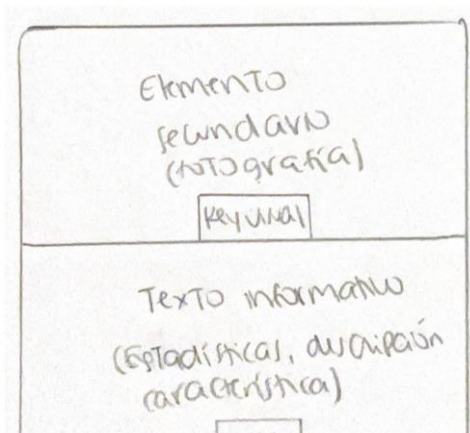 Elemento
secundario
(fotografía)
Key visual
Texto informativo
(Estadísticas, descripción
característica)